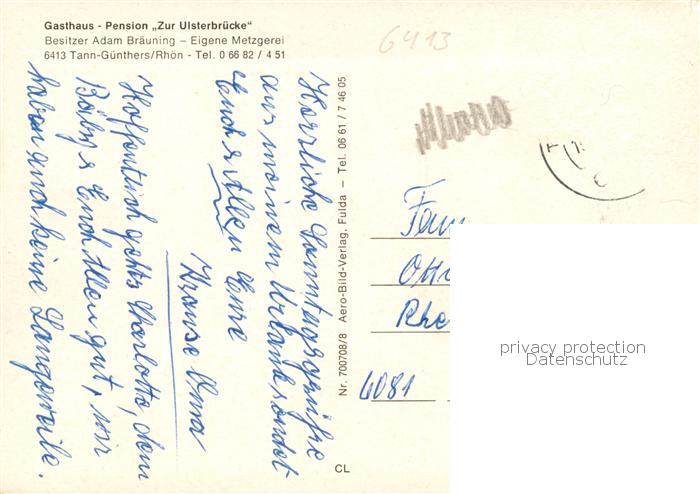 Gasthaus - Pension „Zur Ulsterbrücke"
Besitzer Adam Bräuning – Eigene Metzgerei
6413 Tann-Günthers/Rhön - Tel. 0 66 82 / 4 51
6413
Herzliche Sonntagsgrüße
aus meinem Urlaub sendet
Euch & Allen Eure
Krause Oma
Hoffentlich gehts Charlotte, dem
Baby & Euch Allen gut, wir
haben auch keine Langeweile.
Nr. 700708/8 Aero-Bild-Verlag, Fulda — Tel. 06 61 / 7 46 05
CL
Fam
Ott
Rhe
6081
privacy protection
Datenschutz